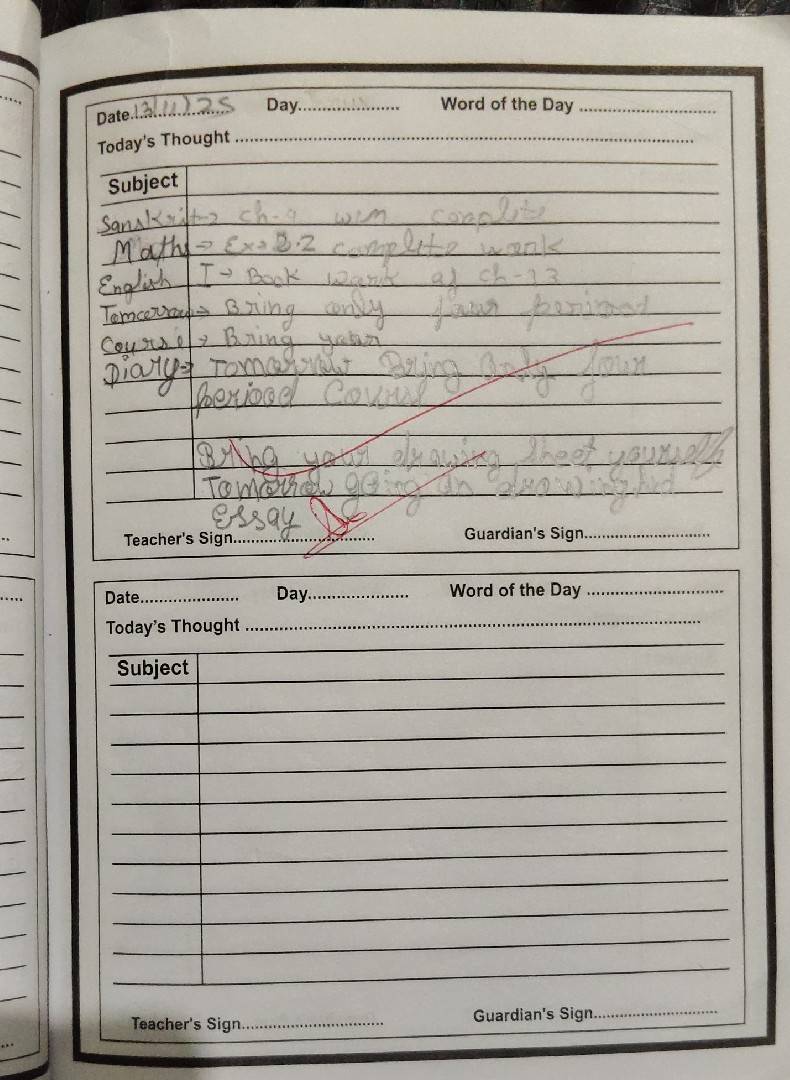 Date.13/11/25 Day..................... Word of the Day ............................
Today's Thought ............................................................
Subject
Sanskrit → ch-9 complite
Maths → Ex → 2.2 complite wark
English I → Book wark af ch-13
Tomcerrow → Bring anly faur period
Course → Bring
Diary → Tomorrow Bring Only four
period Course
Bring your drawing sheet yourself
Tomorrow going on drawing
Essay
Teacher's Sign............................. Guardian's Sign..........................
Date..................... Day..................... Word of the Day ............................
Today's Thought ............................................................
Subject
Teacher's Sign............................. Guardian's Sign..........................